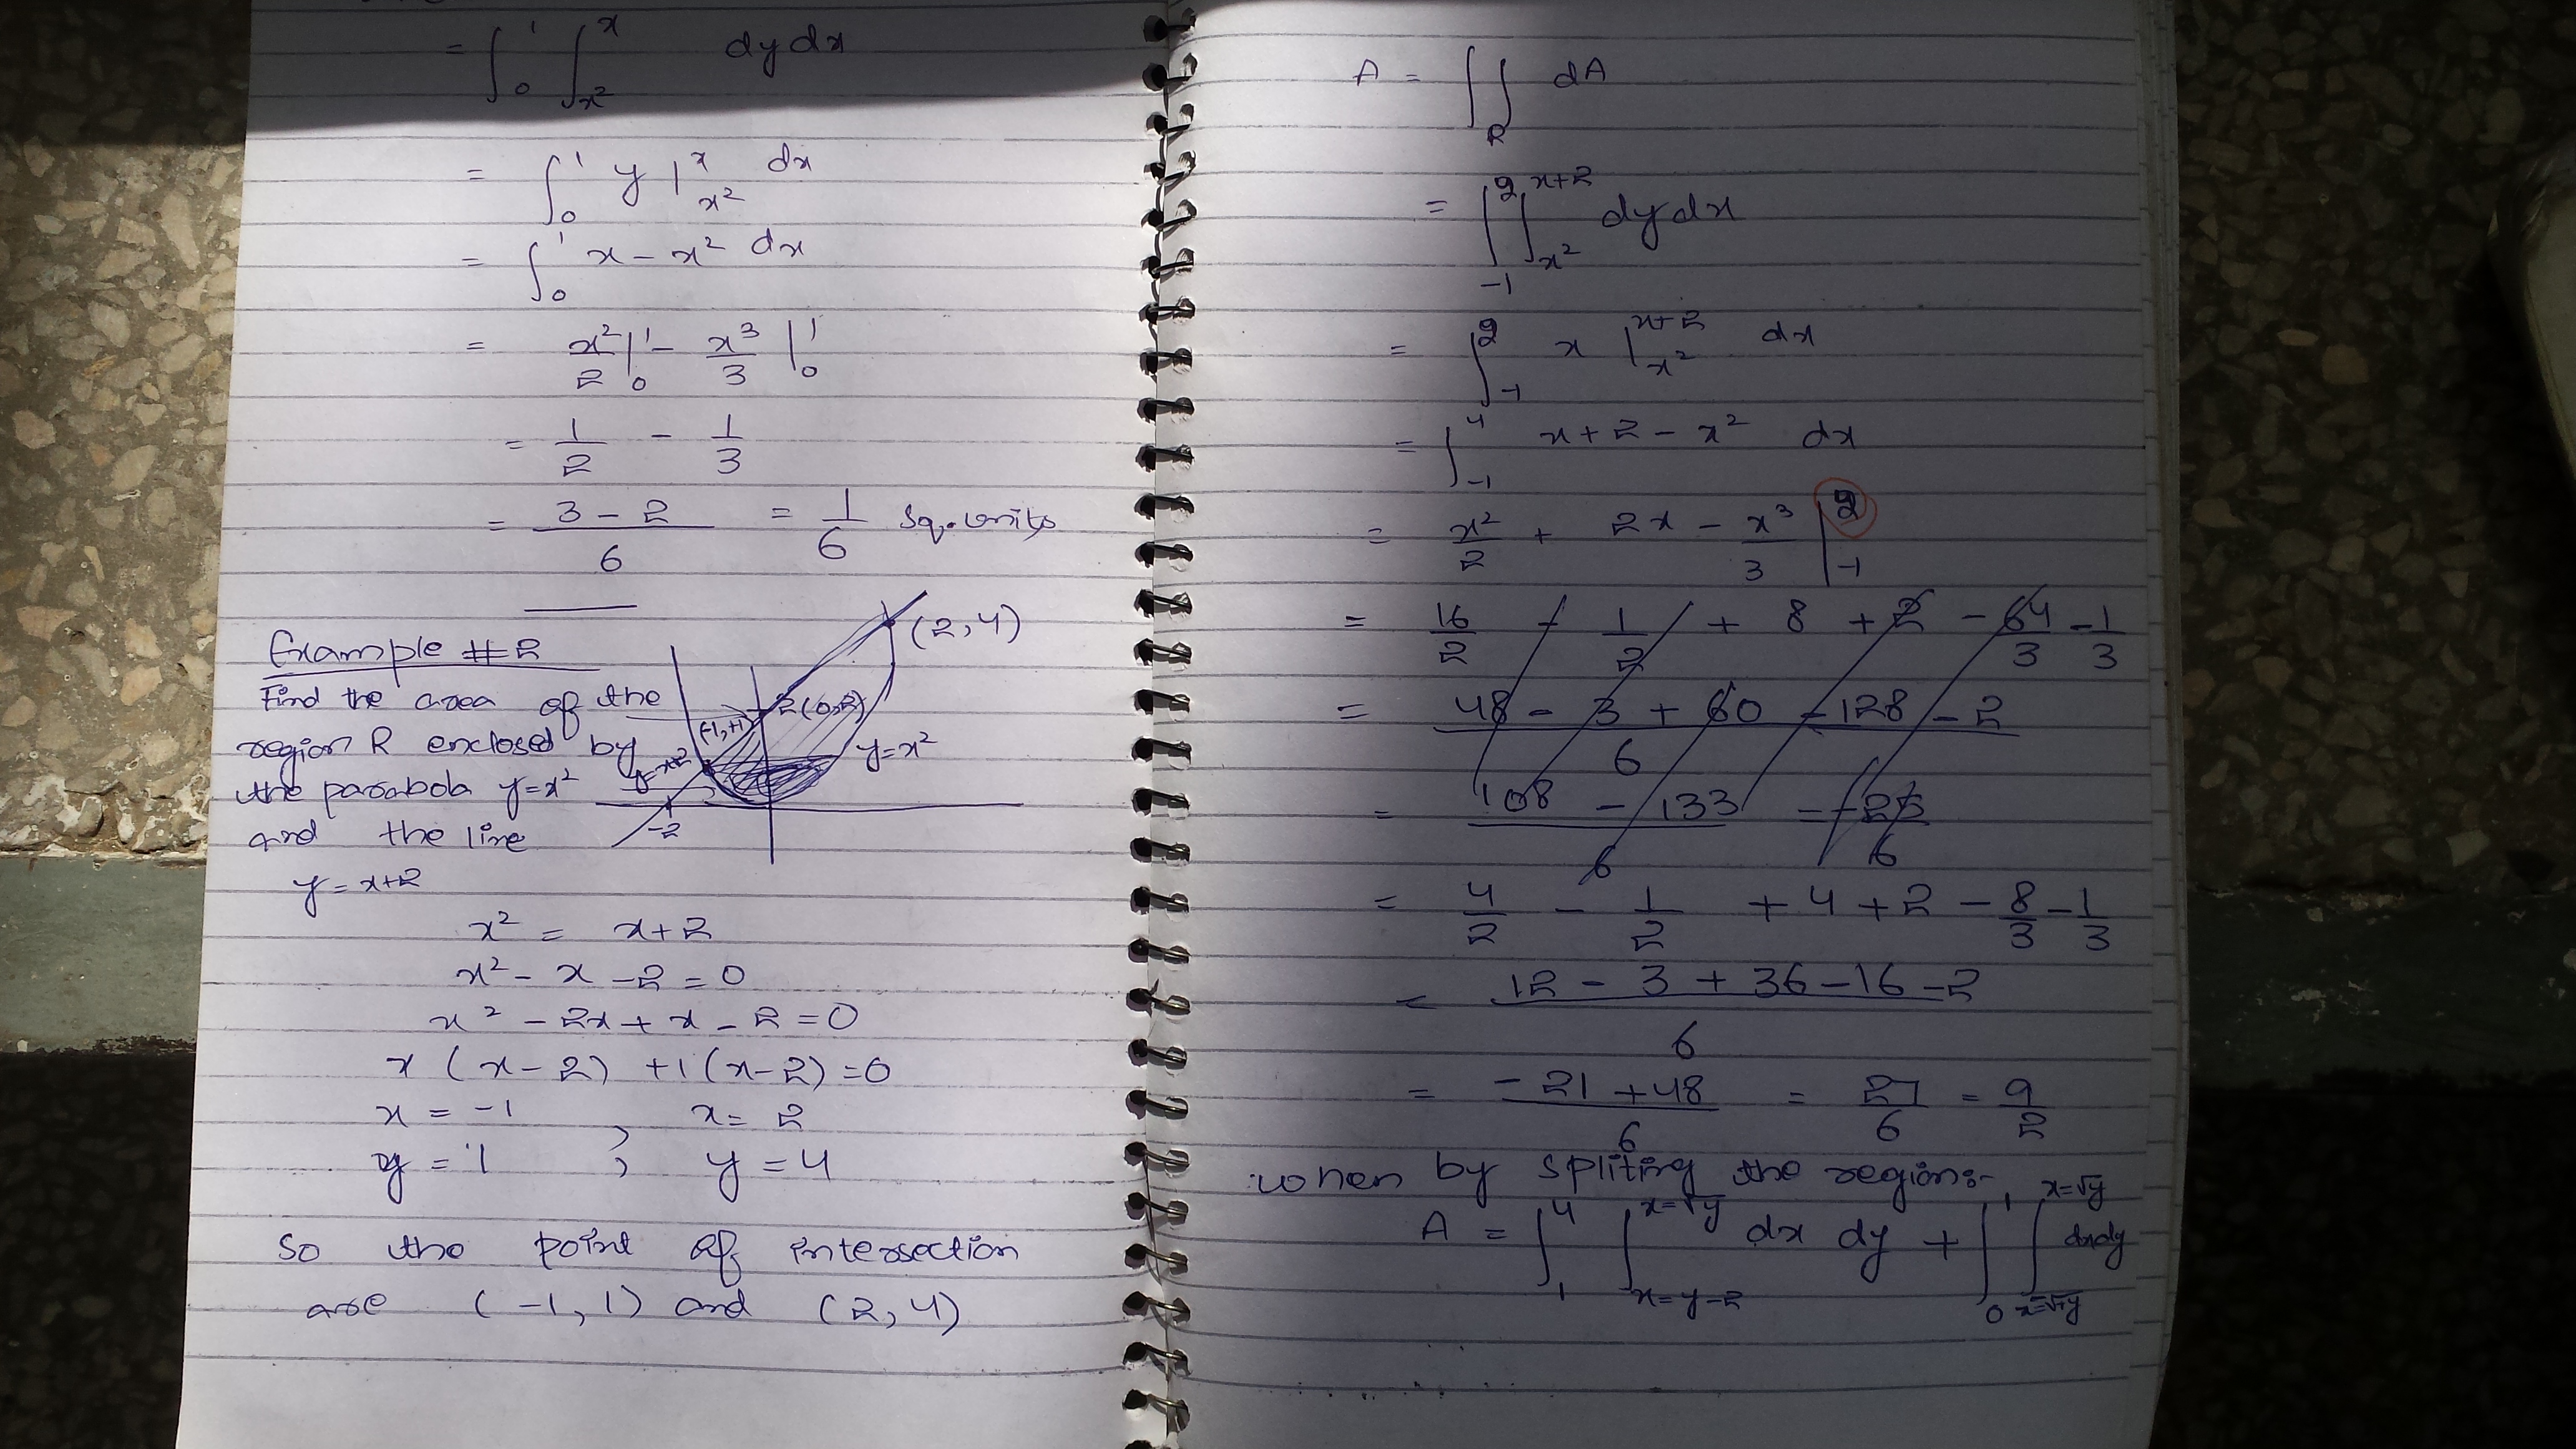 = ∫₀¹ ∫ₓ²ˣ dy dx
= ∫₀¹ y |ₓ²ˣ dx
= ∫₀¹ x - x² dx
= x²/2 |₀¹ - x³/3 |₀¹
= 1/2 - 1/3
= (3 - 2)/6 = 1/6 sq. units
Example #2
Find the area of the
region R enclosed by
the parabola y=x²
and the line
y = x+2
(2,4)
2(0,2)
(-1,+1)
y=x+2
y=x²
-2
x² = x+2
x² - x - 2 = 0
x² - 2x + x - 2 = 0
x (x-2) +1 (x-2) = 0
x = -1 , x = 2
y = 1 ; y = 4
So the point of intersection
are (-1, 1) and (2, 4)
A = ∫∫_R dA
= ∫₋₁² ∫_{x²}^{x+2} dy dx
= ∫₋₁² x |_{x²}^{x+2} dx
= ∫₋₁⁴ x+2-x² dx
= x²/2 + 2x - x³/3 |₋₁²
= 16/2 - 1/2 + 8 + 2 - 64/3 - 1/3
= (48 - 3 + 60 - 128 - 2)/6
= (108 - 133)/6 = -25/6
= 4/2 - 1/2 + 4 + 2 - 8/3 - 1/3
= (12 - 3 + 36 - 16 - 2)/6
= (-21 + 48)/6 = 27/6 = 9/2
when by spliting the region:-
A = ∫₁⁴ ∫_{x=y-2}^{x=√y} dx dy + ∫₀¹ ∫_{x=-√y}^{x=√y} dxdy